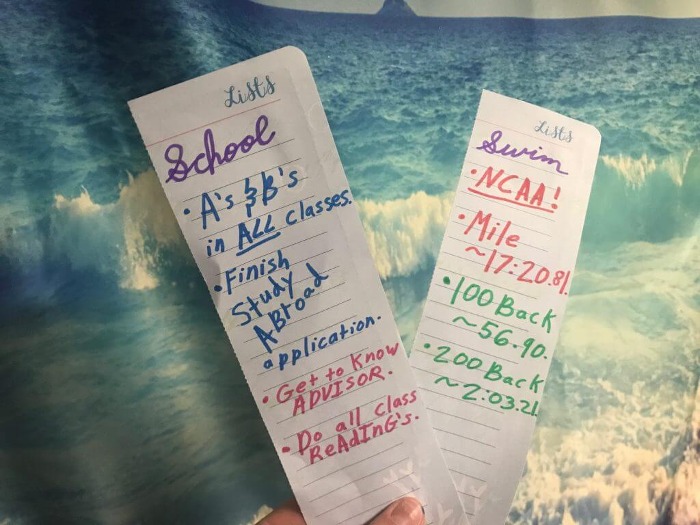 Lists
School
• A's & B's
in ALL classes.
• Finish
Study
Abroad
application.
• Get to Know
ADVISOR.
• Do all class
ReAdInG's.
Lists
Swim
• NCAA!
• Mile
~17:20.81.
• 100 Back
~56.90.
• 200 Back
~2:03.21